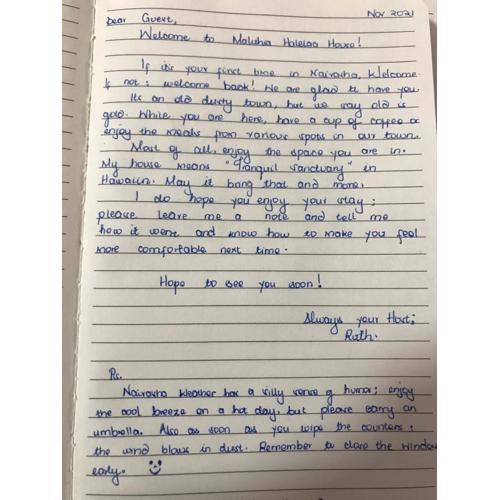 Dear Guest,
Nov 2021
Welcome to Maluhia Haleloa House!
If it's your first time in Naivasha, Welcome.
Is not; welcome back! We are glad to have you.
Its an old dusty town, but we say old is
gold. While you are here, have a cup of coffee or
enjoy the meals from various spots in our town.
Most of all, enjoy the space you are in.
My house means "Tranquil sanctuary" in
Hawaiin. May it bring that and more.
I do hope you enjoy your stay;
please leave me a note and tell me
how it went and know how to make you feel
more comfortable next time.
Hope to see you soon!
Always your Host;
Ruth.
Ps.
Naivasha Weather has a silly sense of humor; enjoy
the cool breeze on a hot day, but please carry an
umbrella. Also as soon as you wipe the counters;
the wind blows in dust. Remember to close the window
early.